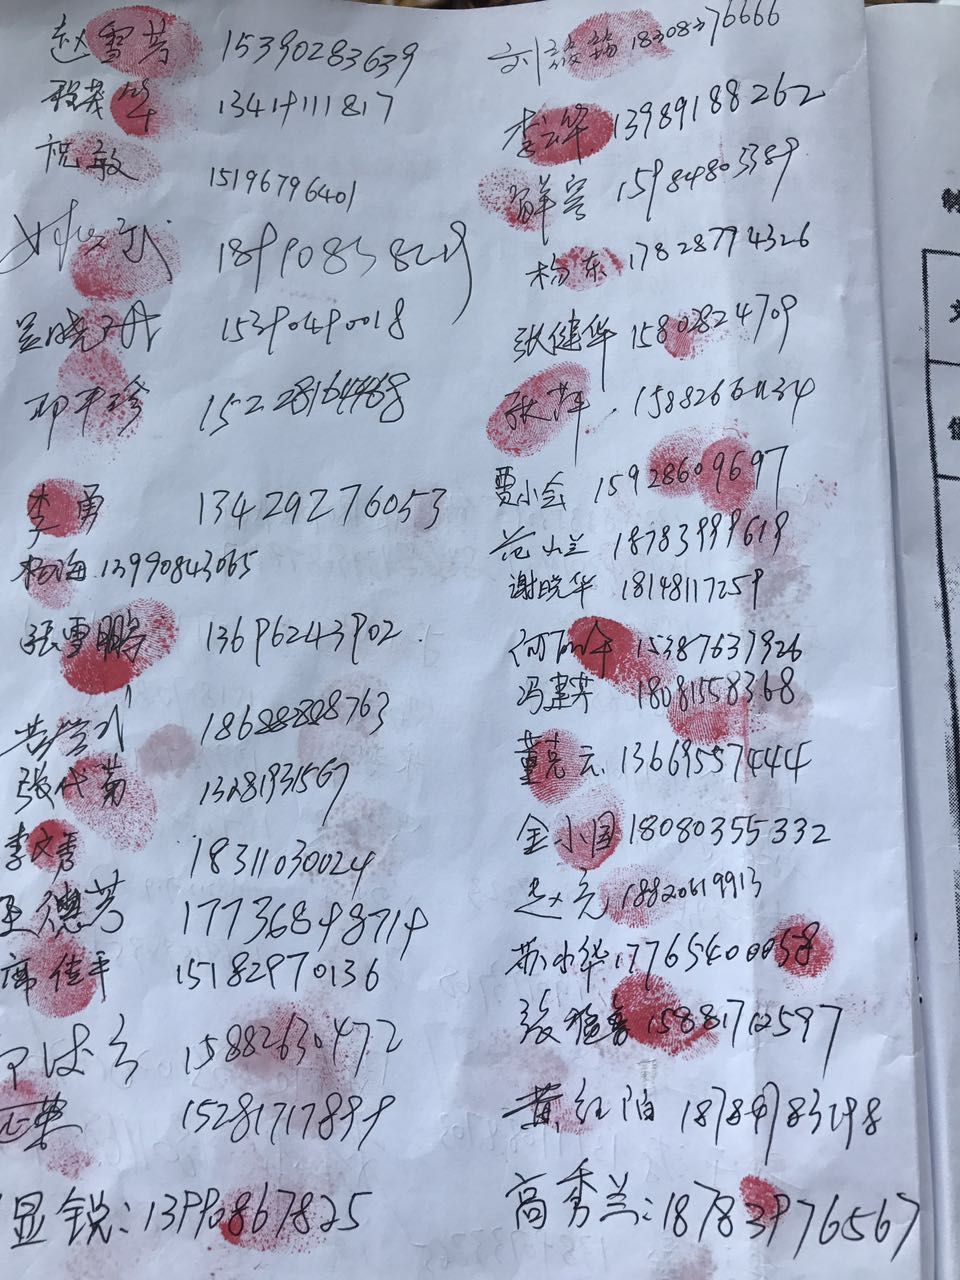 赵雪芳 15390283639
程茂华 13419111817
祝敏 15196796401
吴晓丹 15390490018
邓平珍
李勇 13429276053
杨海 13990843065
张雪鹏 13696243902
张代菊 13281931567
李文秀 18311030024
王德芳 17736848714
席佳平 15182970136
15882630472
15281717899
显锐：13990867825
刘 18308276666
李云华 13989188262
鲜容 15984803389
杨东 17828774326
张健华 15802824709
张萍
贾小会 15928609697
范小兰 18783999619
谢晓华 18148117259
何丽华 15387637926
冯建英 18081558368
董克云 13669557444
金小国 18080355332
赵亮 18820619913
苏小华 17765400058
15881712597
黄红陌 18784983298
高秀兰：18783976567